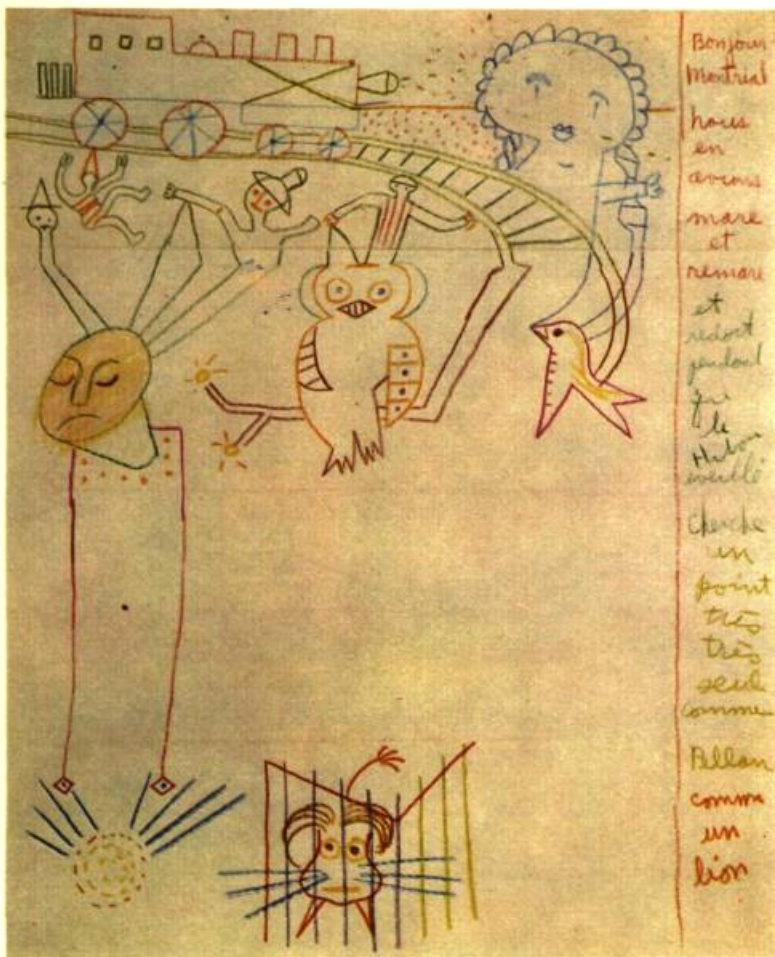 Bonjour
Montréal
nous
en
avions
mare
et
remare
et
redort
pendant
que
le
Hibou
éveillé
cherche
un
point
très
très
seul
comme
Pellan
comme
un
lion